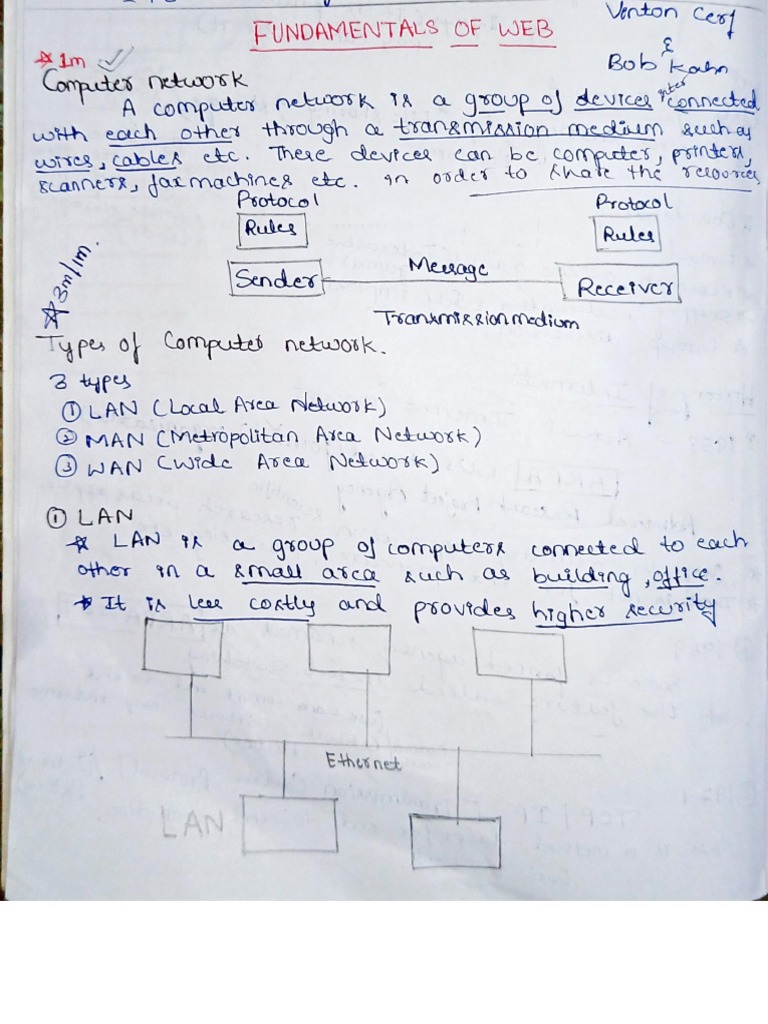 FUNDAMENTALS OF WEB
Venton Cerf
&
Bob Kahn
1m
Computer network
A computer network is a group of devices inter connected
with each other through a transmission medium such as
wires, cables etc. These devices can be computer, printers,
scanners, fax machines etc. in order to share the resources
Protocol Protocol
Rules Rules
Sender Message Receiver
Transmission medium
3m/1m.
Types of Computer network.
3 types
① LAN (Local Area Network)
② MAN (Metropolitan Area Network)
③ WAN (Wide Area Network)
① LAN
* LAN is a group of computers connected to each
other in a small area such as building, office.
* It is less costly and provides higher security
Ethernet
LAN